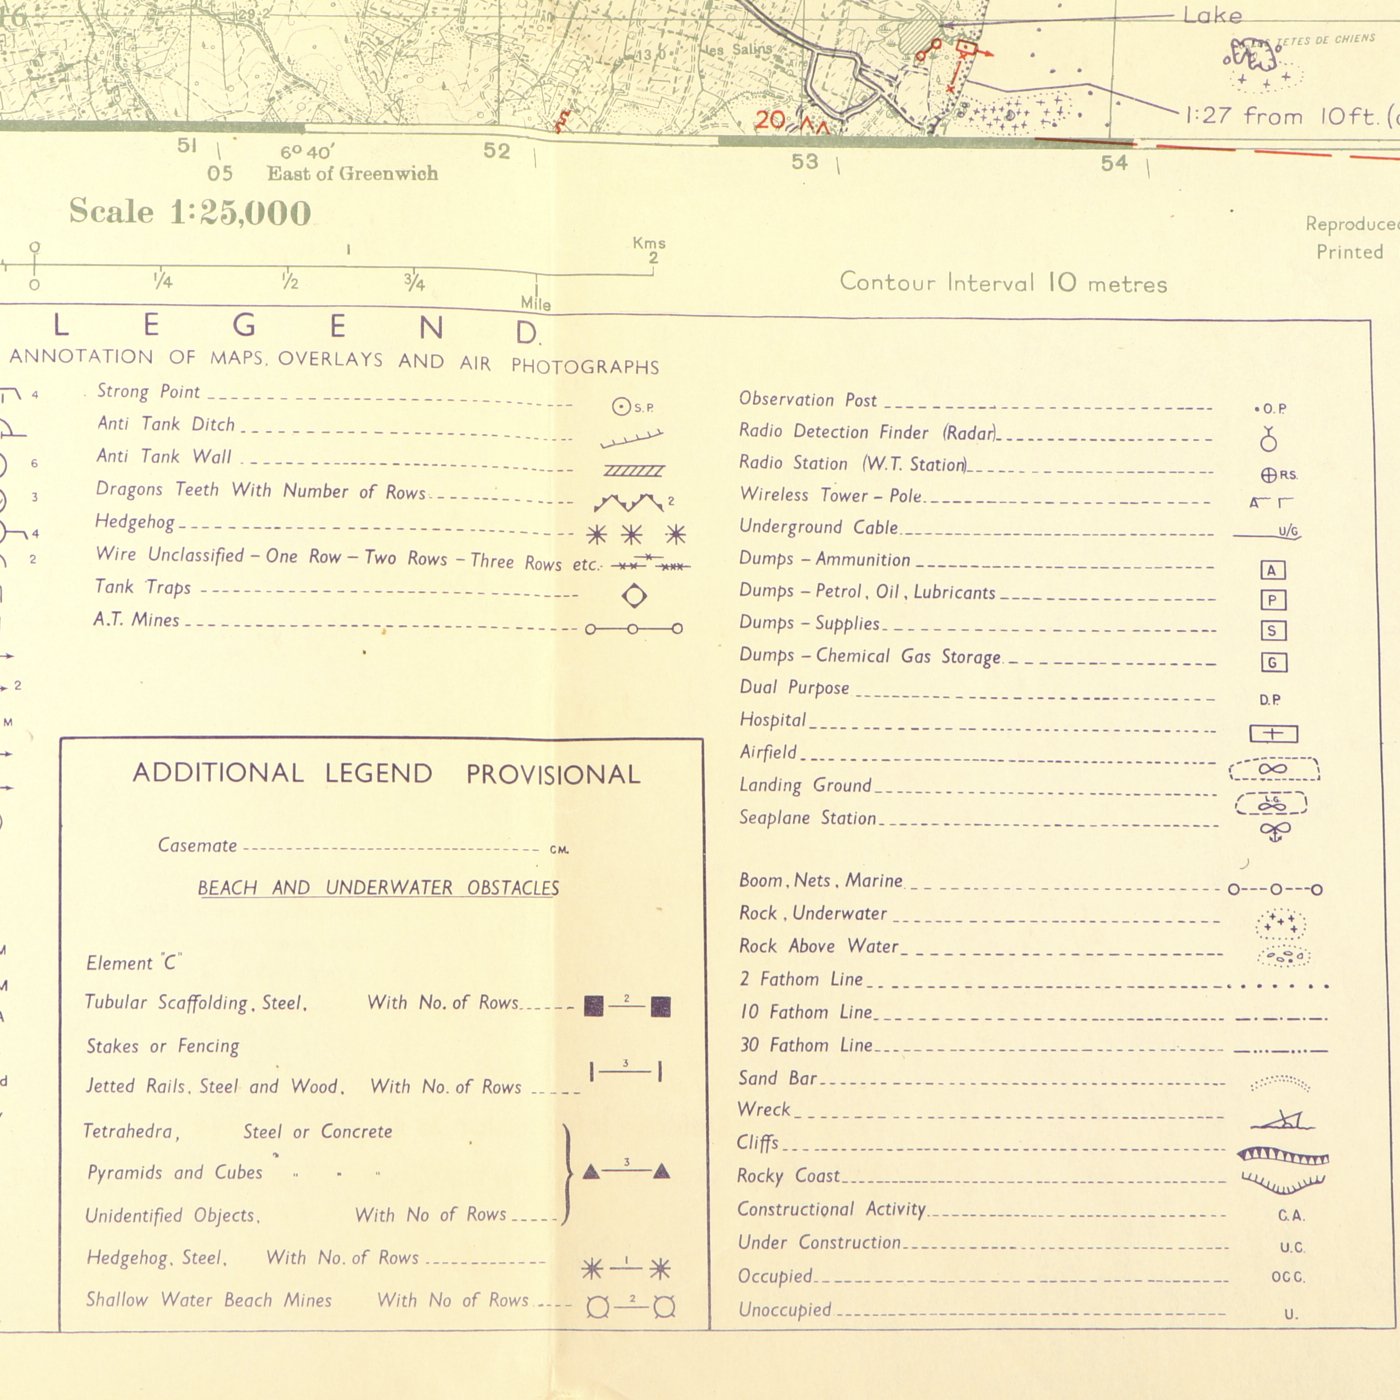 Lake
29.2
13.0
les Salins
TETES DE CHIENS
20
1:27 from 10ft.
51
6° 40'
52
53
54
05
East of Greenwich
Scale 1:25,000
Reproduced
Printed
0
1
Kms
2
0
1/4
1/2
3/4
1
Mile
Contour Interval 10 metres
L E G E N D.
ANNOTATION OF MAPS, OVERLAYS AND AIR PHOTOGRAPHS
4
Strong Point S.P.
Anti Tank Ditch
6 Anti Tank Wall
3 Dragons Teeth With Number of Rows 2
4 Hedgehog
2 Wire Unclassified – One Row – Two Rows – Three Rows etc.
Tank Traps
A.T. Mines
2
M
ADDITIONAL LEGEND PROVISIONAL
Casemate C.M.
BEACH AND UNDERWATER OBSTACLES
Element "C"
Tubular Scaffolding, Steel, With No. of Rows 2
Stakes or Fencing
Jetted Rails, Steel and Wood, With No. of Rows 3
Tetrahedra, Steel or Concrete
Pyramids and Cubes " " " 3
Unidentified Objects, With No of Rows
Hedgehog, Steel, With No. of Rows 1
Shallow Water Beach Mines With No of Rows 2
M
M
A
d
Observation Post O.P.
Radio Detection Finder (Radar)
Radio Station (W.T. Station) R.S.
Wireless Tower – Pole
Underground Cable U/G
Dumps – Ammunition A
Dumps – Petrol, Oil, Lubricants P
Dumps – Supplies S
Dumps – Chemical Gas Storage G
Dual Purpose D.P.
Hospital
Airfield
Landing Ground L.G.
Seaplane Station
Boom, Nets, Marine
Rock, Underwater
Rock Above Water
2 Fathom Line
10 Fathom Line
30 Fathom Line
Sand Bar
Wreck
Cliffs
Rocky Coast
Constructional Activity C.A.
Under Construction U.C.
Occupied OCC.
Unoccupied U.